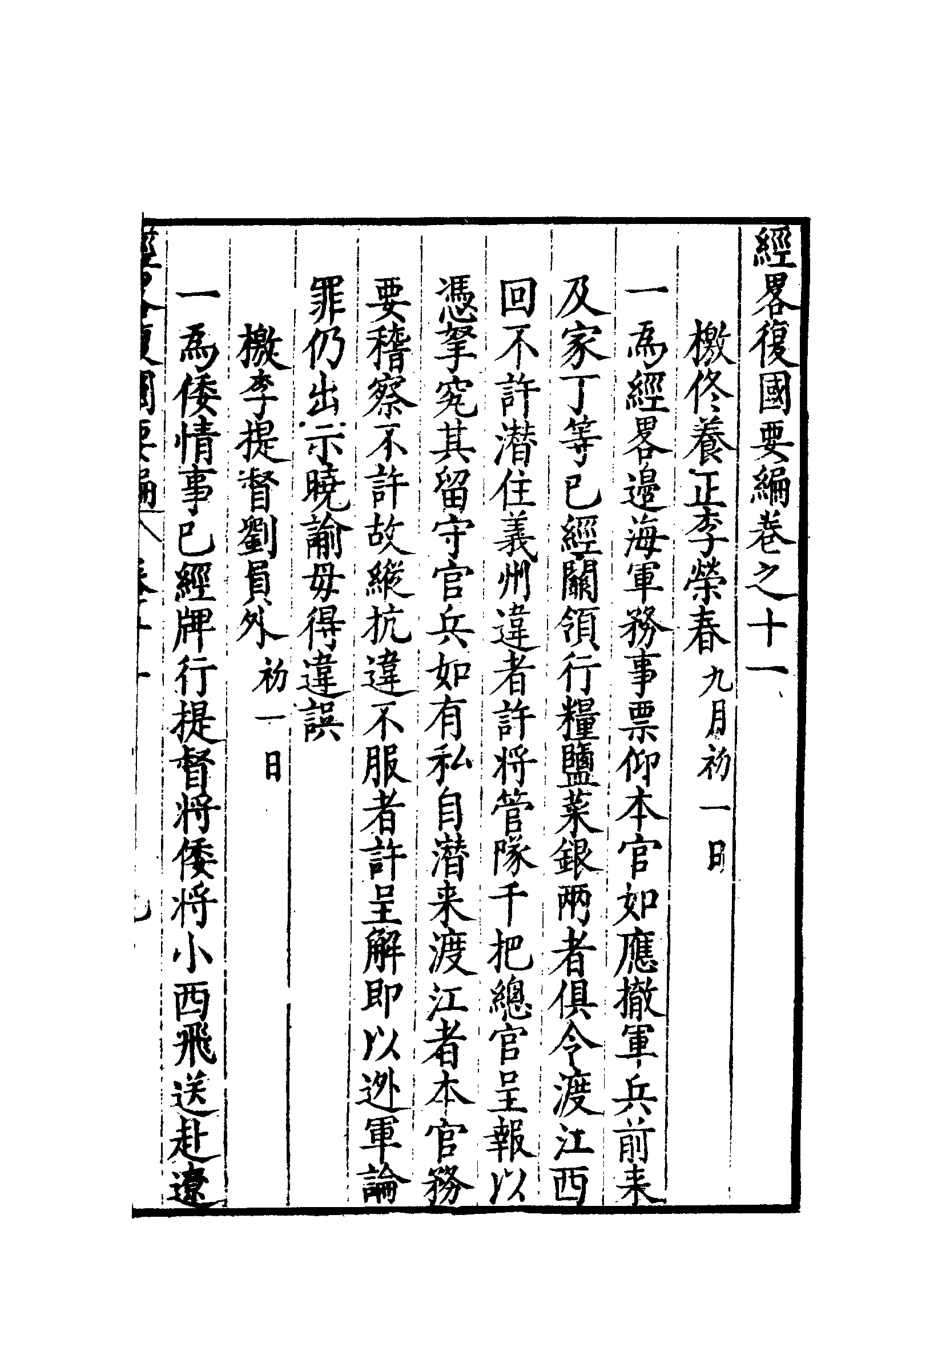 經畧復國要編卷之十一
檄佟養正李榮春九月初一日
一為經畧邊海軍務事票仰本官如應撤軍兵前来
及家丁等已經關領行糧鹽菜銀兩者俱令渡江西
回不許潜住義州違者許将管隊千把總官呈報以
憑拏究其留守官兵如有私自潜来渡江者本官務
要稽察不許故縱抗違不服者許呈解即以逃軍論
罪仍出示曉諭毋得違誤
檄李提督劉員外初一日
一為倭情事已經牌行提督将倭将小西飛送赴遼
經畧復國要編